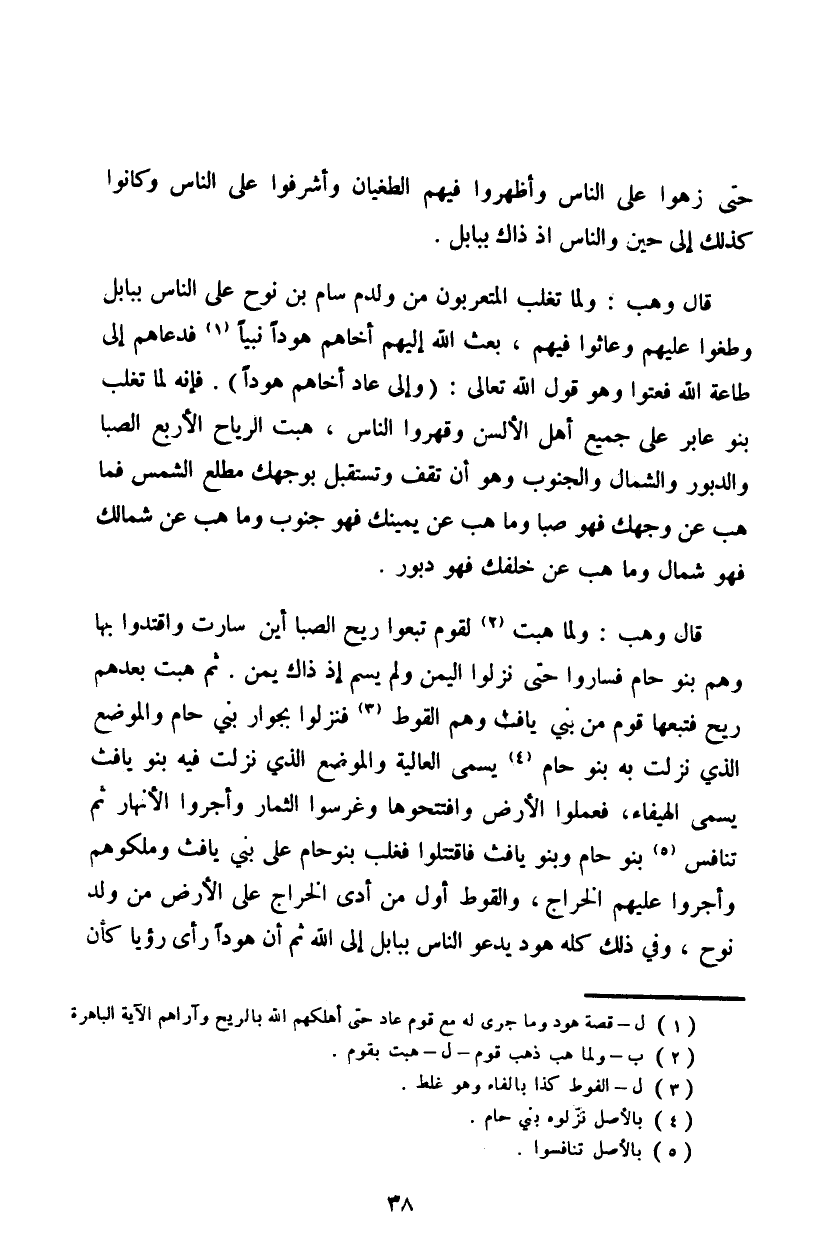 حتّى زهوا على الناس وأظهروا فيهم الطغيان وأشرفوا على الناس وكانوا
كذلك إلى حين والناس اذ ذاك ببابل .
قال وهب : ولما تغلب المتعربون من ولدم سام بن نوح على الناس ببابل
وطغوا عليهم وعاثوا فيهم ، بعث الله إليهم أخاهم هوداً نبياً (١) فدعاهم إلى
طاعة الله فعتوا وهو قول الله تعالى : (وإلى عاد أخاهم هوداً) . فإنه لما تغلب
بنو عابر على جميع أهل الألسن وقهروا الناس ، هبت الرياح الأربع الصبا
والدبور والشمال والجنوب وهو أن تقف وتستقبل بوجهك مطلع الشمس فما
هب عن وجهك فهو صبا وما هب عن يمينك فهو جنوب وما هب عن شمالك
فهو شمال وما هب عن خلفك فهو دبور .
قال وهب : ولما هبت (٢) لقوم تبعوا ريح الصبا أين سارت واقتدوا بها
وهم بنو حام فساروا حتّى نزلوا اليمن ولم يسم إذ ذاك يمن . ثم هبت بعدهم
ريح فتبعها قوم من بني يافث وهم القوط (٣) فنزلوا بجوار بني حام والموضع
الذي نزلت به بنو حام (٤) يسمى العالية والموضع الذي نزلت فيه بنو يافث
يسمى الهيفاء، فعملوا الأرض وافتتحوها وغرسوا الثمار وأجروا الأنهار ثم
تنافس (٥) بنو حام وبنو يافث فاقتتلوا فغلب بنوحام على بني يافث وملكوهم
وأجروا عليهم الخراج ، والقوط أول من أدى الخراج على الأرض من ولد
نوح ، وفي ذلك كله هود يدعو الناس ببابل إلى الله ثم أن هوداً رأى رؤيا كأن
(١) ل – قصة هود وما جرى له مع قوم عاد حتى أهلكهم الله بالريح وآراهم الآية الباهرة
(٢) ب – ولما هب ذهب قوم – ل – هبت بقوم .
(٣) ل – الفوط كذا بالفاء وهو غلط .
(٤) بالأصل نزّلوه بني حام .
(٥) بالأصل تنافسوا .
٣٨